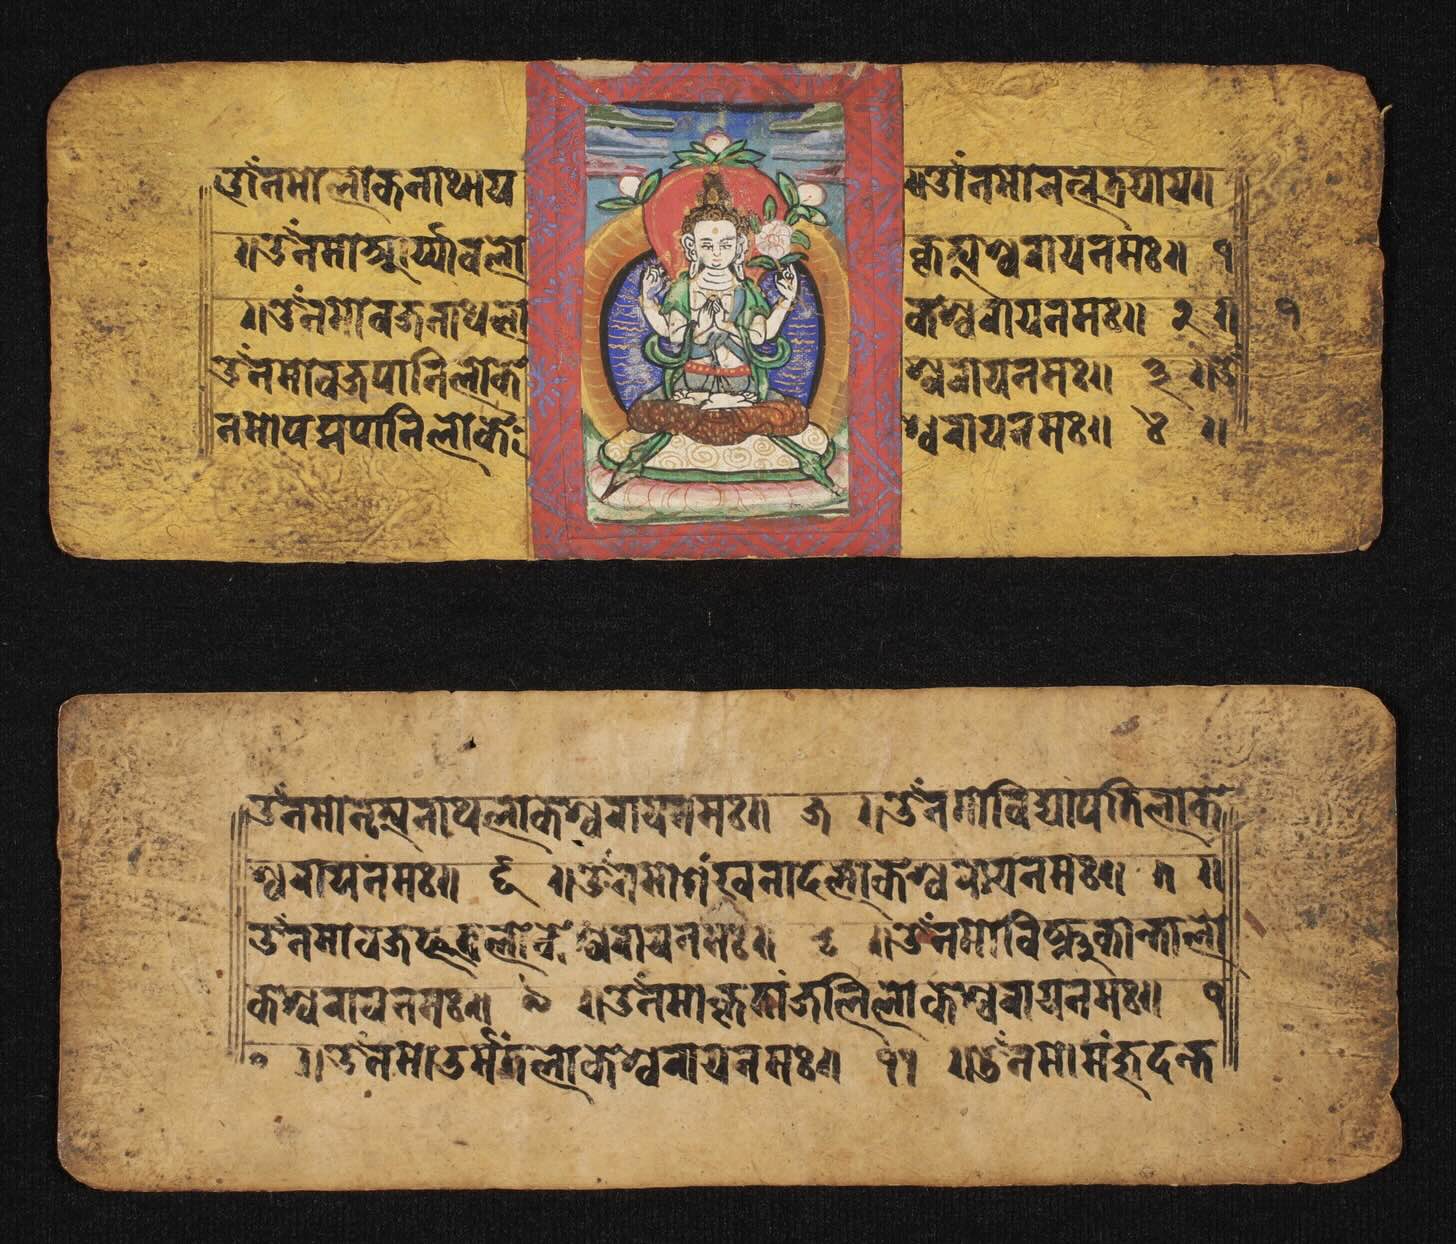 ॐ नमो लोकनाथाय ॥ॐ नमो रत्नत्रयाय॥
॥ॐ नमो आर्य्यावलो नमः॥ १
॥ॐ नमो वज्रनाथलो केश्वराय नमः॥ २ ॥ १
ॐ नमो वज्रपानिलोके श्वराय नमः॥ ३ ॥ॐ
नमो पद्मपानिलोके श्वराय नमः॥ ४ ॥
ॐ नमो नाथलोकेश्वराय नमः॥ ॥ॐ नमो विद्यापतिलोके
श्वराय नमः॥ ६ ॥ॐ नमो शंखनादलोकेश्वराय नमः॥ ७ ॥
ॐ नमो लोकेश्वराय नमः॥ ८ ॥ॐ नमो विष्णुकान्तालो
केश्वराय नमः॥ ९ ॥ॐ नमो कृतांजलिलोकेश्वराय नमः॥ १
० ॥ॐ नमो लोकेश्वराय नमः॥ ११ ॥ॐ नमो मंजुदन्त